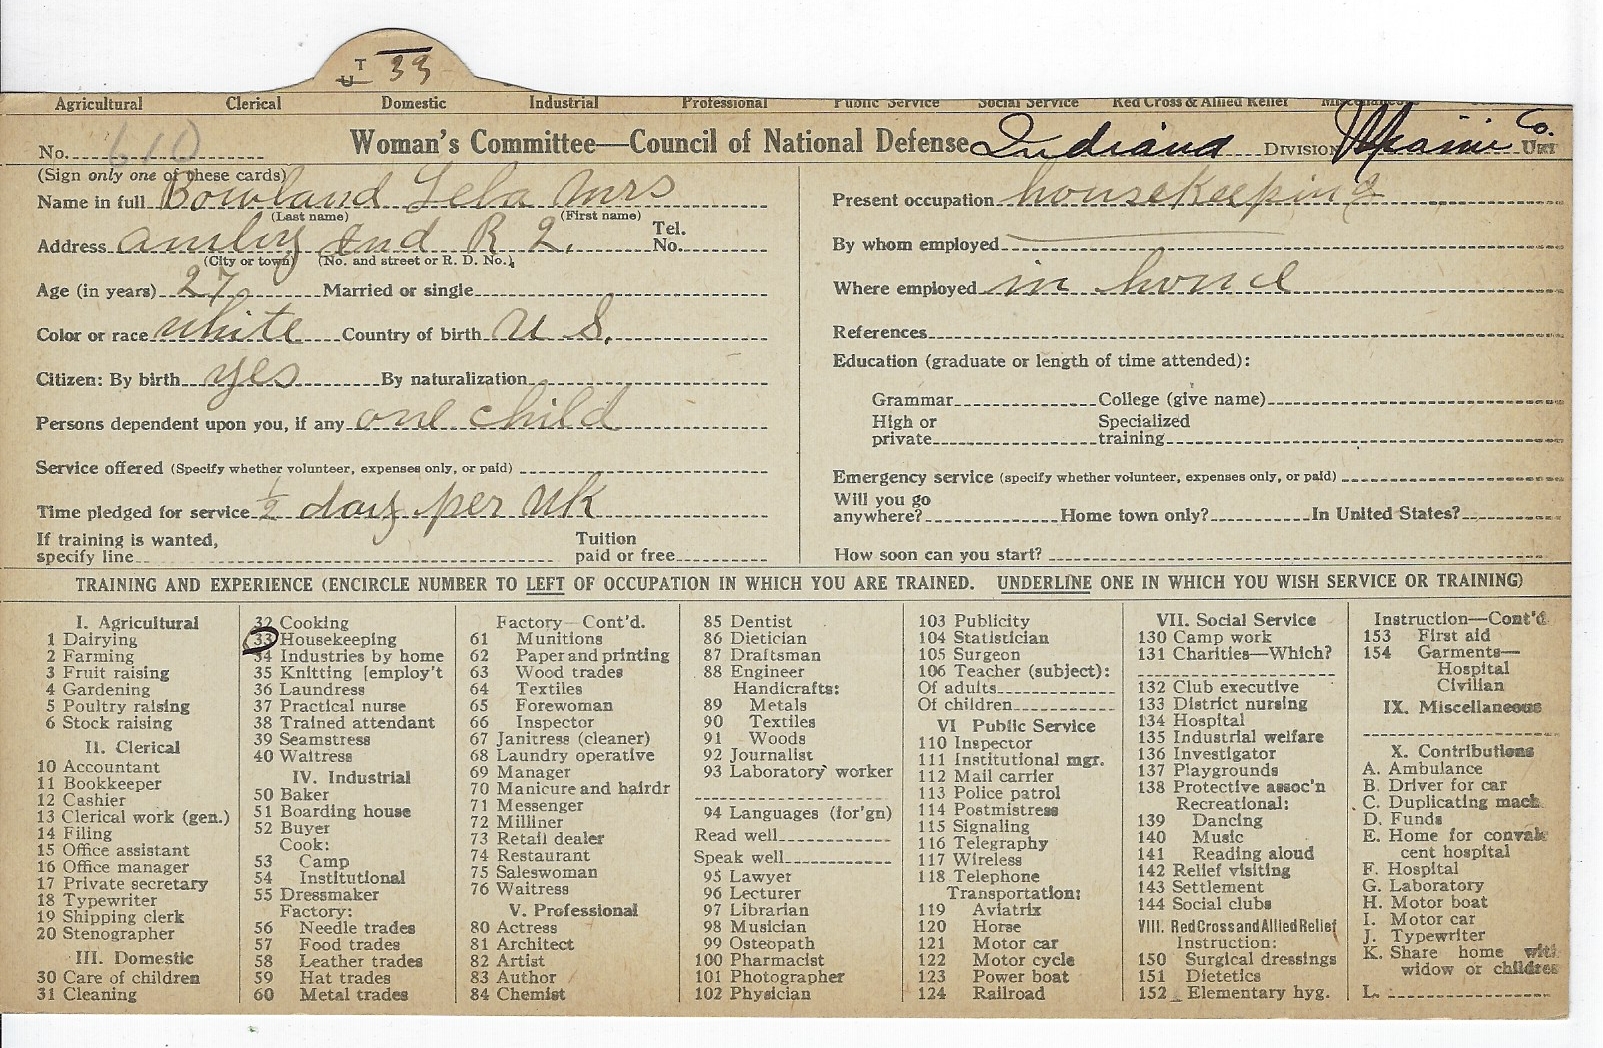 T
U 33
Agricultural Clerical Domestic Industrial Professional Public Service Social Service Red Cross & Allied Relief Miscellaneous
No. 610 Woman's Committee—Council of National Defense Indiana DIVISION Miami Co. UNIT
(Sign only one of these cards)
Name in full Bowland Lela Mrs
(Last name) (First name)
Address Amboy Ind R 2. Tel. No.
(City or town) (No. and street or R. D. No.)
Age (in years) 27 Married or single
Color or race white Country of birth U S.
Citizen: By birth yes By naturalization
Persons dependent upon you, if any one child
Service offered (Specify whether volunteer, expenses only, or paid)
Time pledged for service 1/2 day per wk
If training is wanted, specify line Tuition paid or free
Present occupation housekeeping
By whom employed
Where employed in home
References
Education (graduate or length of time attended):
Grammar College (give name)
High or private Specialized training
Emergency service (specify whether volunteer, expenses only, or paid)
Will you go anywhere? Home town only? In United States?
How soon can you start?
TRAINING AND EXPERIENCE (ENCIRCLE NUMBER TO LEFT OF OCCUPATION IN WHICH YOU ARE TRAINED. UNDERLINE ONE IN WHICH YOU WISH SERVICE OR TRAINING)
I. Agricultural
1 Dairying
2 Farming
3 Fruit raising
4 Gardening
5 Poultry raising
6 Stock raising
II. Clerical
10 Accountant
11 Bookkeeper
12 Cashier
13 Clerical work (gen.)
14 Filing
15 Office assistant
16 Office manager
17 Private secretary
18 Typewriter
19 Shipping clerk
20 Stenographer
III. Domestic
30 Care of children
31 Cleaning
32 Cooking
33 Housekeeping
34 Industries by home
35 Knitting [employ't
36 Laundress
37 Practical nurse
38 Trained attendant
39 Seamstress
40 Waitress
IV. Industrial
50 Baker
51 Boarding house
52 Buyer
Cook:
53 Camp
54 Institutional
55 Dressmaker
Factory:
56 Needle trades
57 Food trades
58 Leather trades
59 Hat trades
60 Metal trades
Factory—Cont'd.
61 Munitions
62 Paper and printing
63 Wood trades
64 Textiles
65 Forewoman
66 Inspector
67 Janitress (cleaner)
68 Laundry operative
69 Manager
70 Manicure and hairdr
71 Messenger
72 Milliner
73 Retail dealer
74 Restaurant
75 Saleswoman
76 Waitress
V. Professional
80 Actress
81 Architect
82 Artist
83 Author
84 Chemist
85 Dentist
86 Dietician
87 Draftsman
88 Engineer
Handicrafts:
89 Metals
90 Textiles
91 Woods
92 Journalist
93 Laboratory worker
94 Languages (for'gn)
Read well
Speak well
95 Lawyer
96 Lecturer
97 Librarian
98 Musician
99 Osteopath
100 Pharmacist
101 Photographer
102 Physician
103 Publicity
104 Statistician
105 Surgeon
106 Teacher (subject):
Of adults
Of children
VI Public Service
110 Inspector
111 Institutional mgr.
112 Mail carrier
113 Police patrol
114 Postmistress
115 Signaling
116 Telegraphy
117 Wireless
118 Telephone
Transportation:
119 Aviatrix
120 Horse
121 Motor car
122 Motor cycle
123 Power boat
124 Railroad
VII. Social Service
130 Camp work
131 Charities—Which?
132 Club executive
133 District nursing
134 Hospital
135 Industrial welfare
136 Investigator
137 Playgrounds
138 Protective assoc'n
Recreational:
139 Dancing
140 Music
141 Reading aloud
142 Relief visiting
143 Settlement
144 Social clubs
VIII. Red Cross and Allied Relief
Instruction:
150 Surgical dressings
151 Dietetics
152 Elementary hyg.
Instruction—Cont'd
153 First aid
154 Garments—
Hospital
Civilian
IX. Miscellaneous
X. Contributions
A. Ambulance
B. Driver for car
C. Duplicating mach
D. Funds
E. Home for convale
cent hospital
F. Hospital
G. Laboratory
H. Motor boat
I. Motor car
J. Typewriter
K. Share home with
widow or children
L.